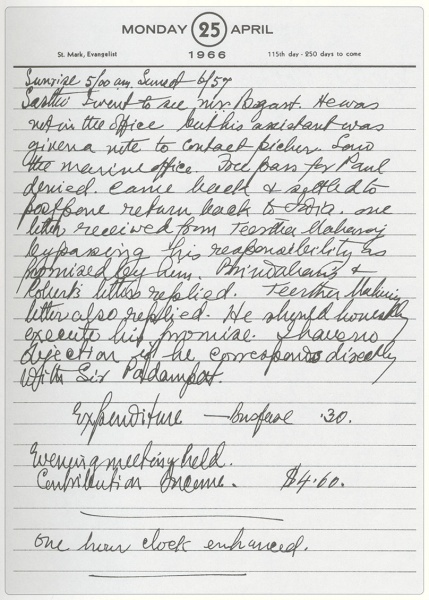 MONDAY 25 APRIL
St. Mark, Evangelist 1966 115th day - 250 days to come
Sunrise 5/00 am Sunset 6/57
I went to see mr. Bogart. He was
not in the office but his assistant was
given a note to contact picher. Saw
the marine office. Free pass for Paul
denied. Came back & settled to
postpone return back to India. one
letter received from Teertha Maharaj
bypassing his responsibility as
promised by him. &
letters replied. Teertha Maharaj
letter also replied. He should honestly
execute his promise. I have no
objection if he corresponds directly
with Sir Padampat.
Expenditure — Busfare .30.
Evening meeting held.
Contribution Income. $4.60.
one hour clock enhanced.